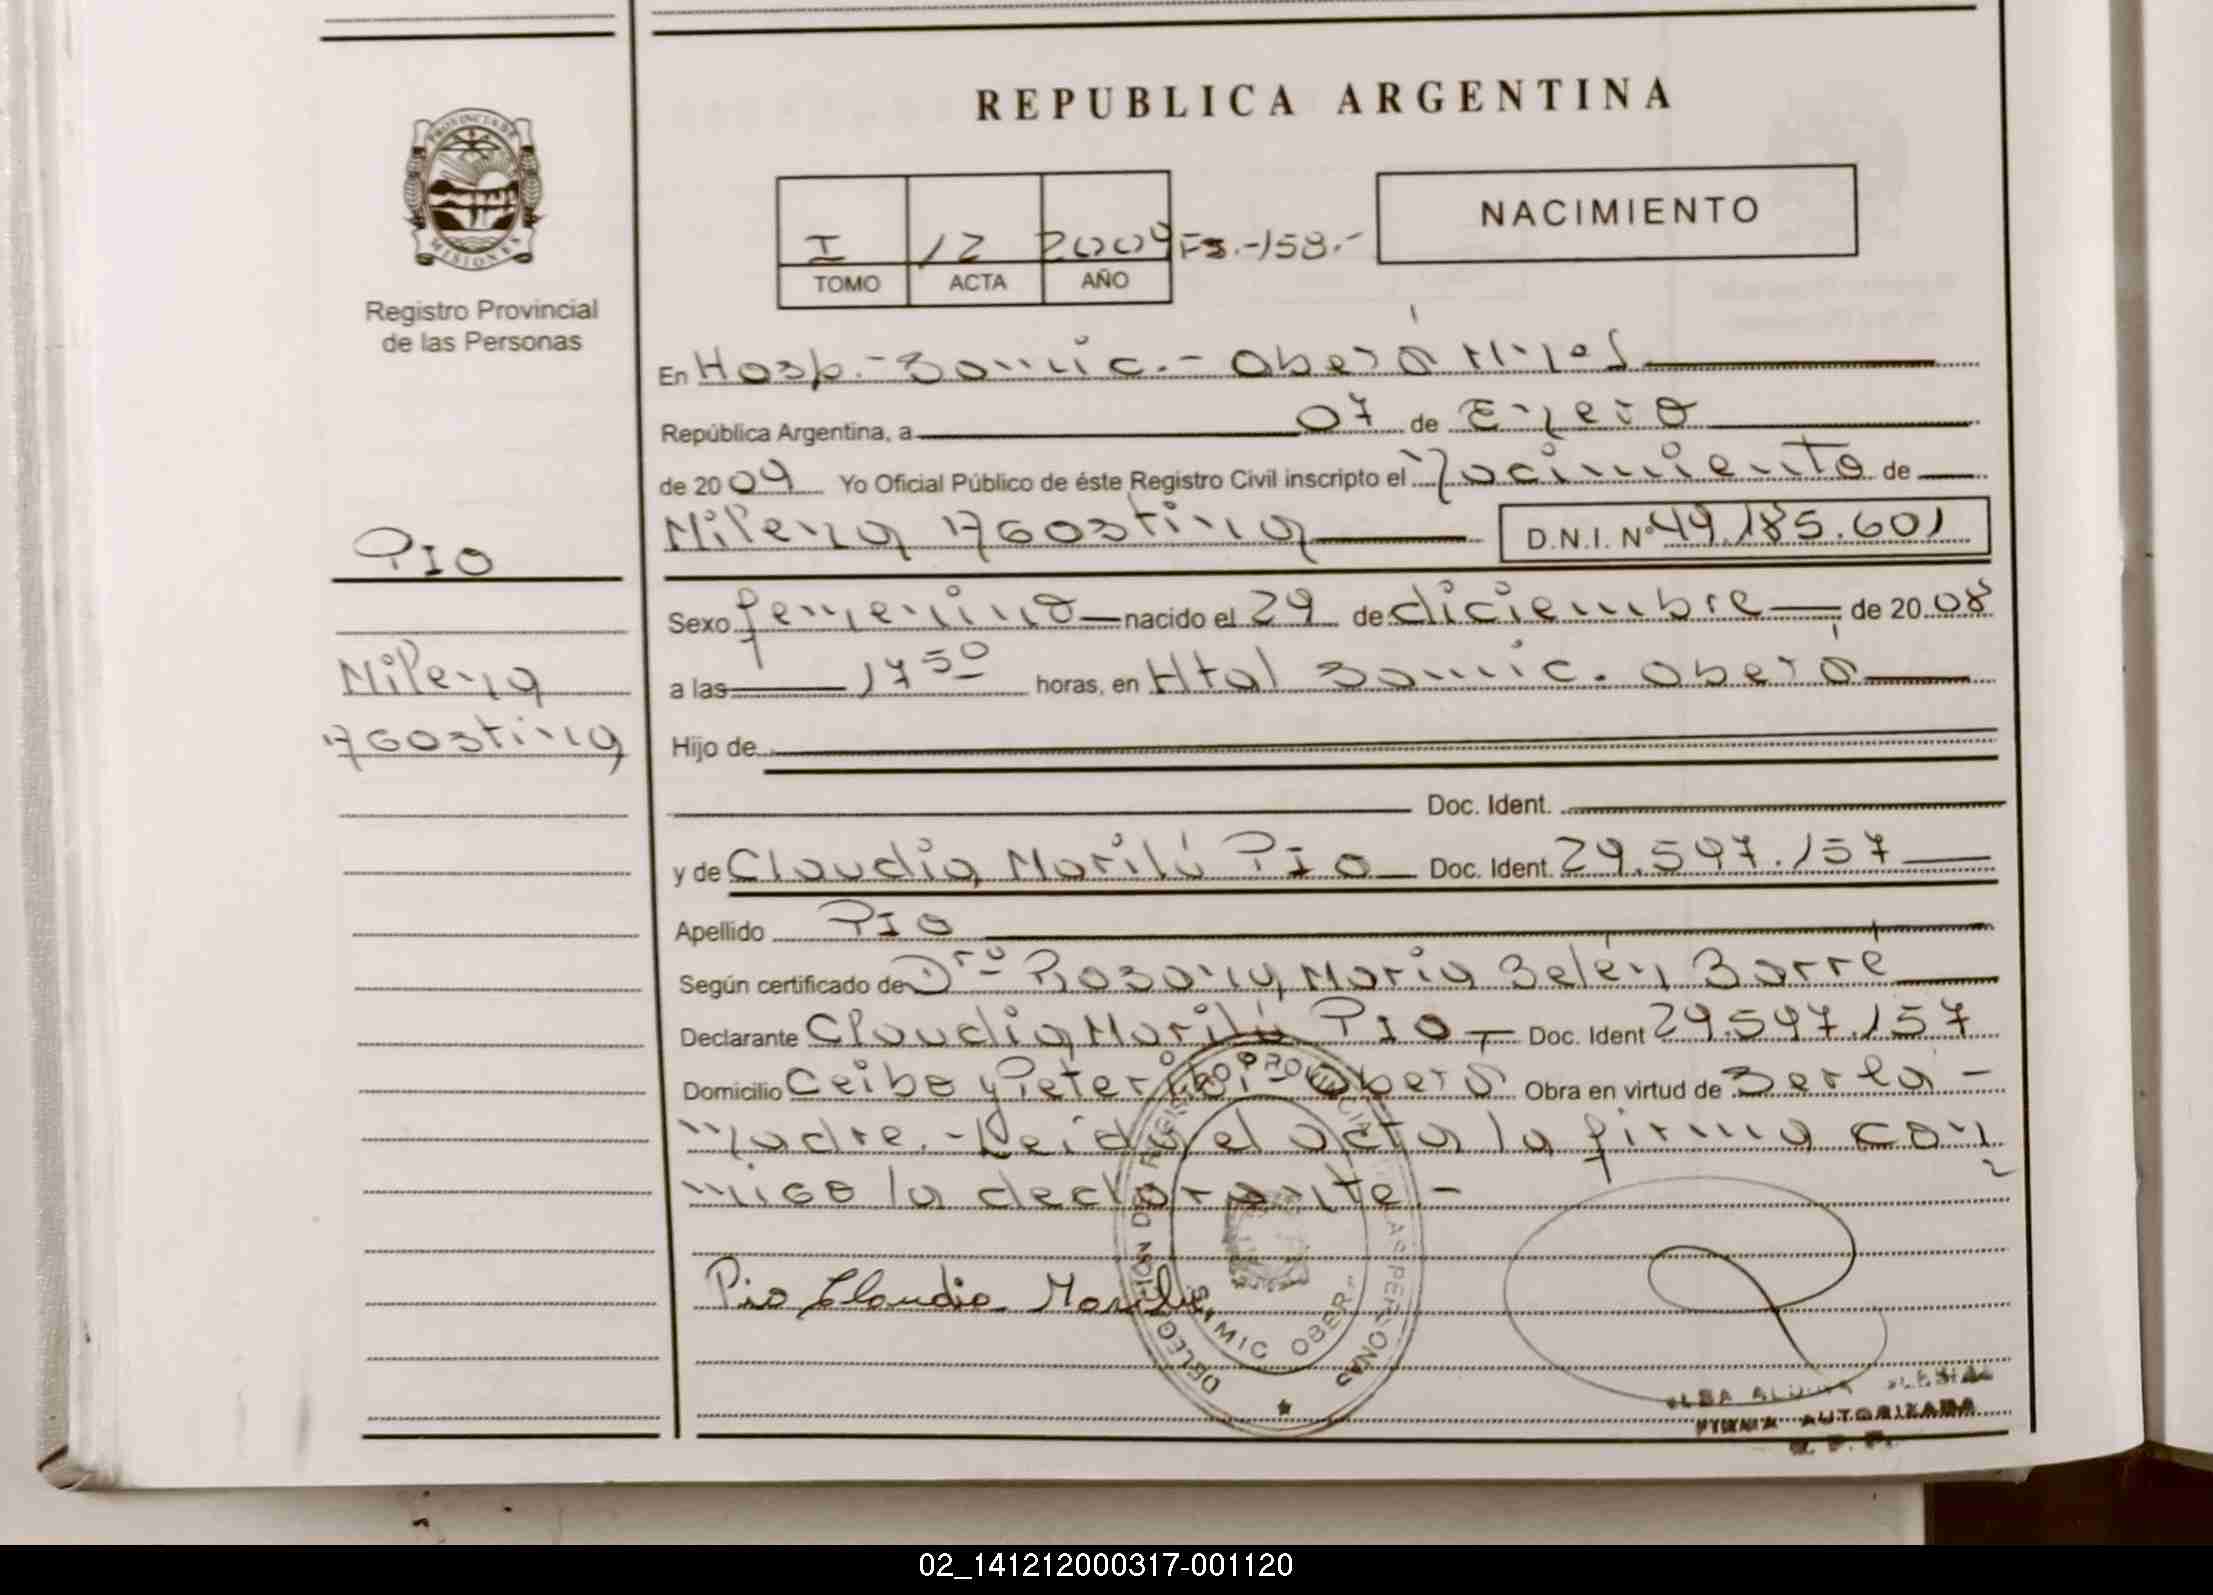 REPUBLICA ARGENTINA
PROVINCIA DE
MISIONES
Registro Provincial
de las Personas
I 12 2009 Fs.-158.-
TOMO ACTA AÑO
NACIMIENTO
En Hosp.- Samic.- Oberá Mnes
República Argentina, a 07 de Enero
de 2009 Yo Oficial Público de éste Registro Civil inscripto el Nacimiento de
Milena Agostina D.N.I. Nº 49.185.601
PIO
Milena
Agostina
Sexo femenino nacido el 29 de diciembre de 2008
a las 17 50 horas, en Htal Samic. Oberá
Hijo de
Doc. Ident.
y de Claudia Marilú PIO Doc. Ident. 29.597.157
Apellido PIO
Según certificado de Dra Rosana María Belén Barré
Declarante Claudia Marilú PIO Doc. Ident 29.597.157
Domicilio Ceibo y Peteribí - Oberá Obra en virtud de Ser la -
madre.- Leida el acta la firma con
migo la declarante -
Pio Claudia Marilu
DELEGACION DEL REGISTRO PROVINCIAL DE LAS PERSONAS
SAMIC OBERA
FIRMA AUTORIZADA
R. P. P.
02_141212000317-001120